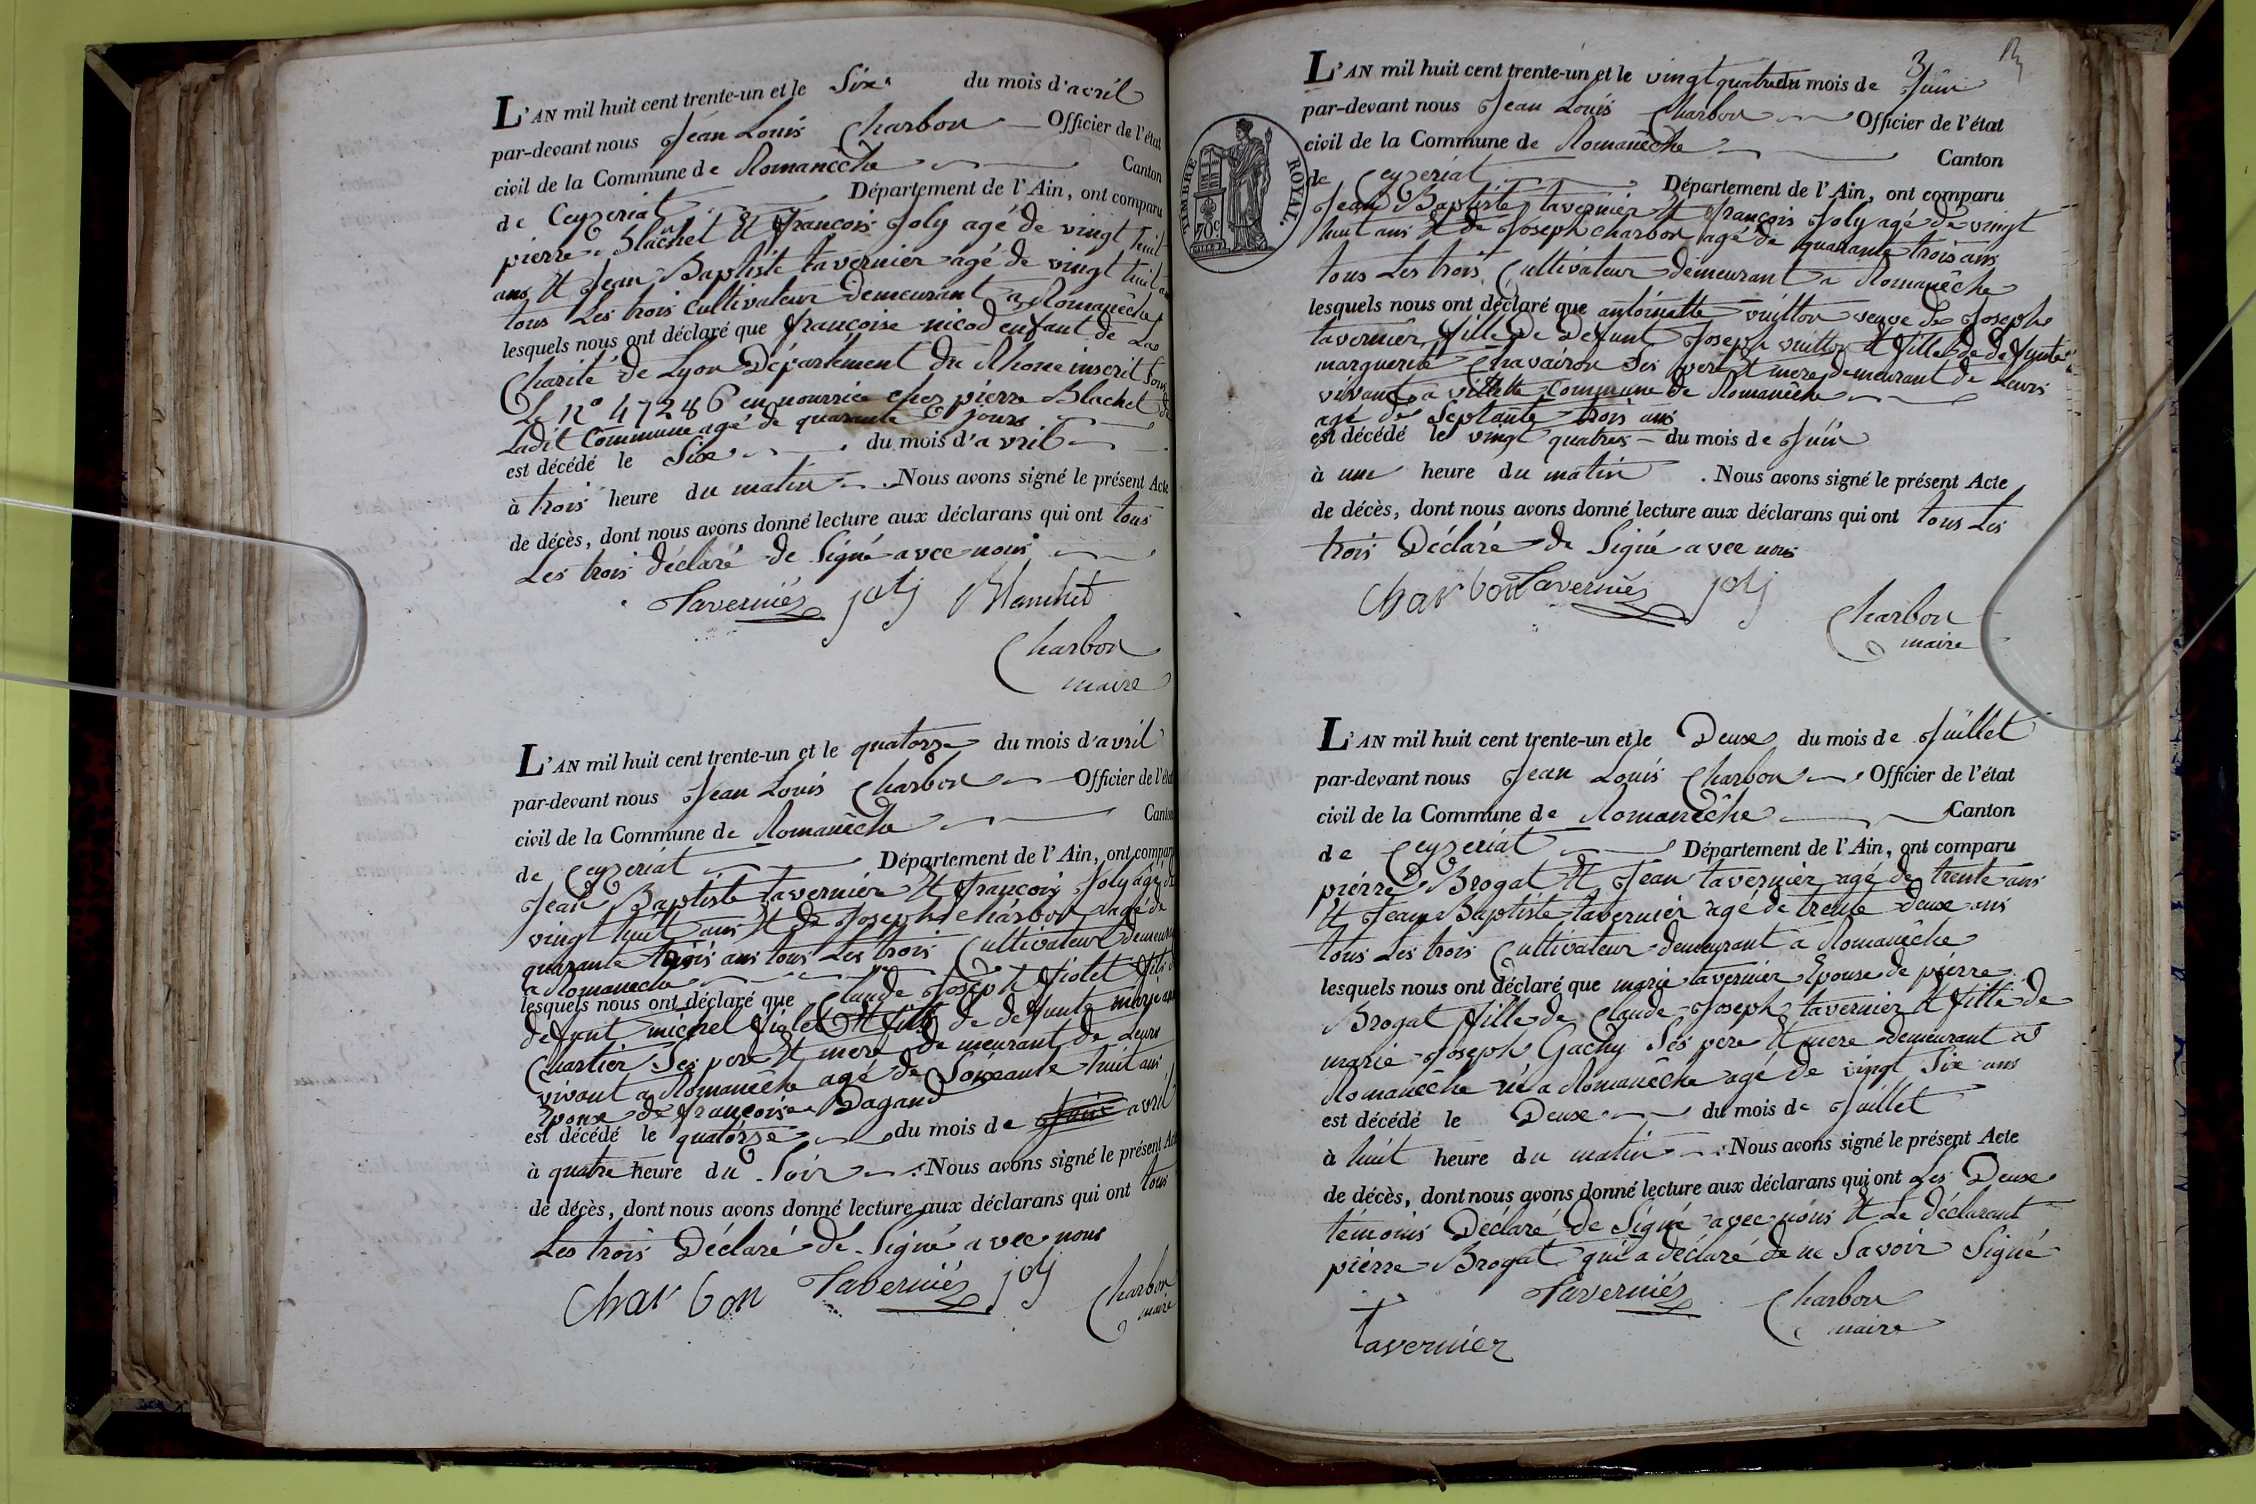 L'AN mil huit cent trente-un et le Six du mois d'avril
par-devant nous Jean Louis Charbon Officier de l'état
civil de la Commune de Romanêche Canton
de Ceyzeriat Département de l'Ain, ont comparu
pierre Blachet Et françois Joly agé de vingt huit
ans Et Jean Baptiste tavernier agé de vingt huit ans
tous Les trois Cultivateur demeurant a Romanêche
lesquels nous ont déclaré que françoise nicod enfant de La
Charité de Lyon Département du Rhone inscrit Sous
Le n° 47286 en nourrice chez pierre Blachet de
Ladit Commune agé de quarante jours
est décédé le Six du mois d'avril
à trois heure du matin. Nous avons signé le présent Acte
de décès, dont nous avons donné lecture aux déclarans qui ont tous
Les trois déclaré de Signé avec nous
Taverniés joly Blanchet
Charbon
maire
L'AN mil huit cent trente-un et le quatorze du mois d'avril
par-devant nous Jean Louis Charbon Officier de l'état
civil de la Commune de Romanêche Canton
de Ceyzeriat Département de l'Ain, ont comparu
Jean Baptiste tavernier Et françois Joly âgé de
vingt huit ans Et de Joseph charbon agé de
quarante trois ans tous Les trois Cultivateur demeurant
a Romaneche
lesquels nous ont déclaré que Claude Joseph fiolet fils de
defunt michel fiolet Et fils de defunte marie
Chartier Ses pere Et mere demeurant de Leurs
vivant a Romanêche agé de Soixante huit ans
Epoux de françoise Dagand
est décédé le quatorze du mois de avril
à quatre heure du Soir. Nous avons signé le présent Acte
de décès, dont nous avons donné lecture aux déclarans qui ont tous
Les trois Déclaré de Signé avec nous
Charbon Taverniés joly
Charbon
maire
3
L'AN mil huit cent trente-un et le vingt quatre du mois de Juin
par-devant nous Jean Louis Charbon Officier de l'état
civil de la Commune de Romanêche Canton
de Ceyzeriat Département de l'Ain, ont comparu
TIMBRE ROYAL
70c
Jean Baptiste tavernier Et françois Joly agé de vingt
huit ans Et de Joseph charbon agé de quarante trois ans
tous Les trois Cultivateur demeurant a Romanêche
lesquels nous ont déclaré que antoinette vuitton veuve de Joseph
tavernier fille De Defunt Joseph vuitton Et fille de defunte
marguerite Chavairon Ses pere Et mere demeurant de Leurs
vivant a villette Commune de Romanêche
agé de Septante trois ans
est décédé le vingt quatres du mois de Juin
à une heure du matin. Nous avons signé le présent Acte
de décès, dont nous avons donné lecture aux déclarans qui ont tous Les
trois Déclaré de Signé avec nous
Charbon Taverniés joly
Charbon
maire
L'AN mil huit cent trente-un et le Deux du mois de Juillet
par-devant nous Jean Louis Charbon Officier de l'état
civil de la Commune de Romanêche Canton
de Ceyzeriat Département de l'Ain, ont comparu
pierre Brogat Et Jean tavernier agé de trente ans
Et Jean Baptiste tavernier agé de trente deux ans
tous Les trois Cultivateur demeurant a Romanêche
lesquels nous ont déclaré que marie tavernier Epouse de pierre
Brogat fille de Claude Joseph tavernier Et fille de
marie Joseph Gachy Ses père Et mere demeurant a
Romanêche né a Romanêche agé de vingt Six ans
est décédé le Deux du mois de Juillet
à huit heure du matin. Nous avons signé le présent Acte
de décès, dont nous avons donné lecture aux déclarans qui ont Les Deux
témoins Déclaré de Signé avec nous Et Le déclarant
pierre Brogat qui a déclaré de ne Savoir Signé
Taverniés Charbon
maire
tavernier